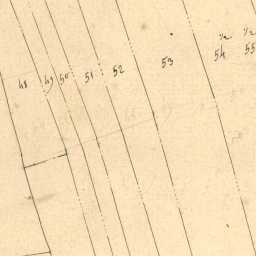 ½ ½
48 49 50 51 52 53 54 55